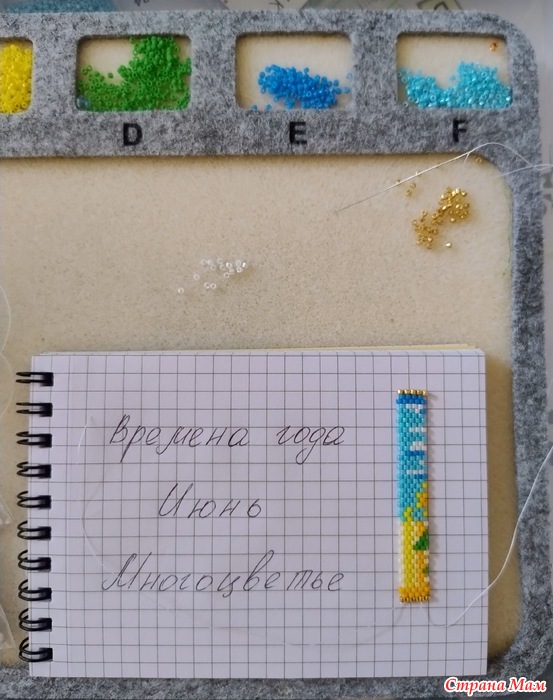 D E F
Времена года
Июнь
Многоцветье
Страна Мам